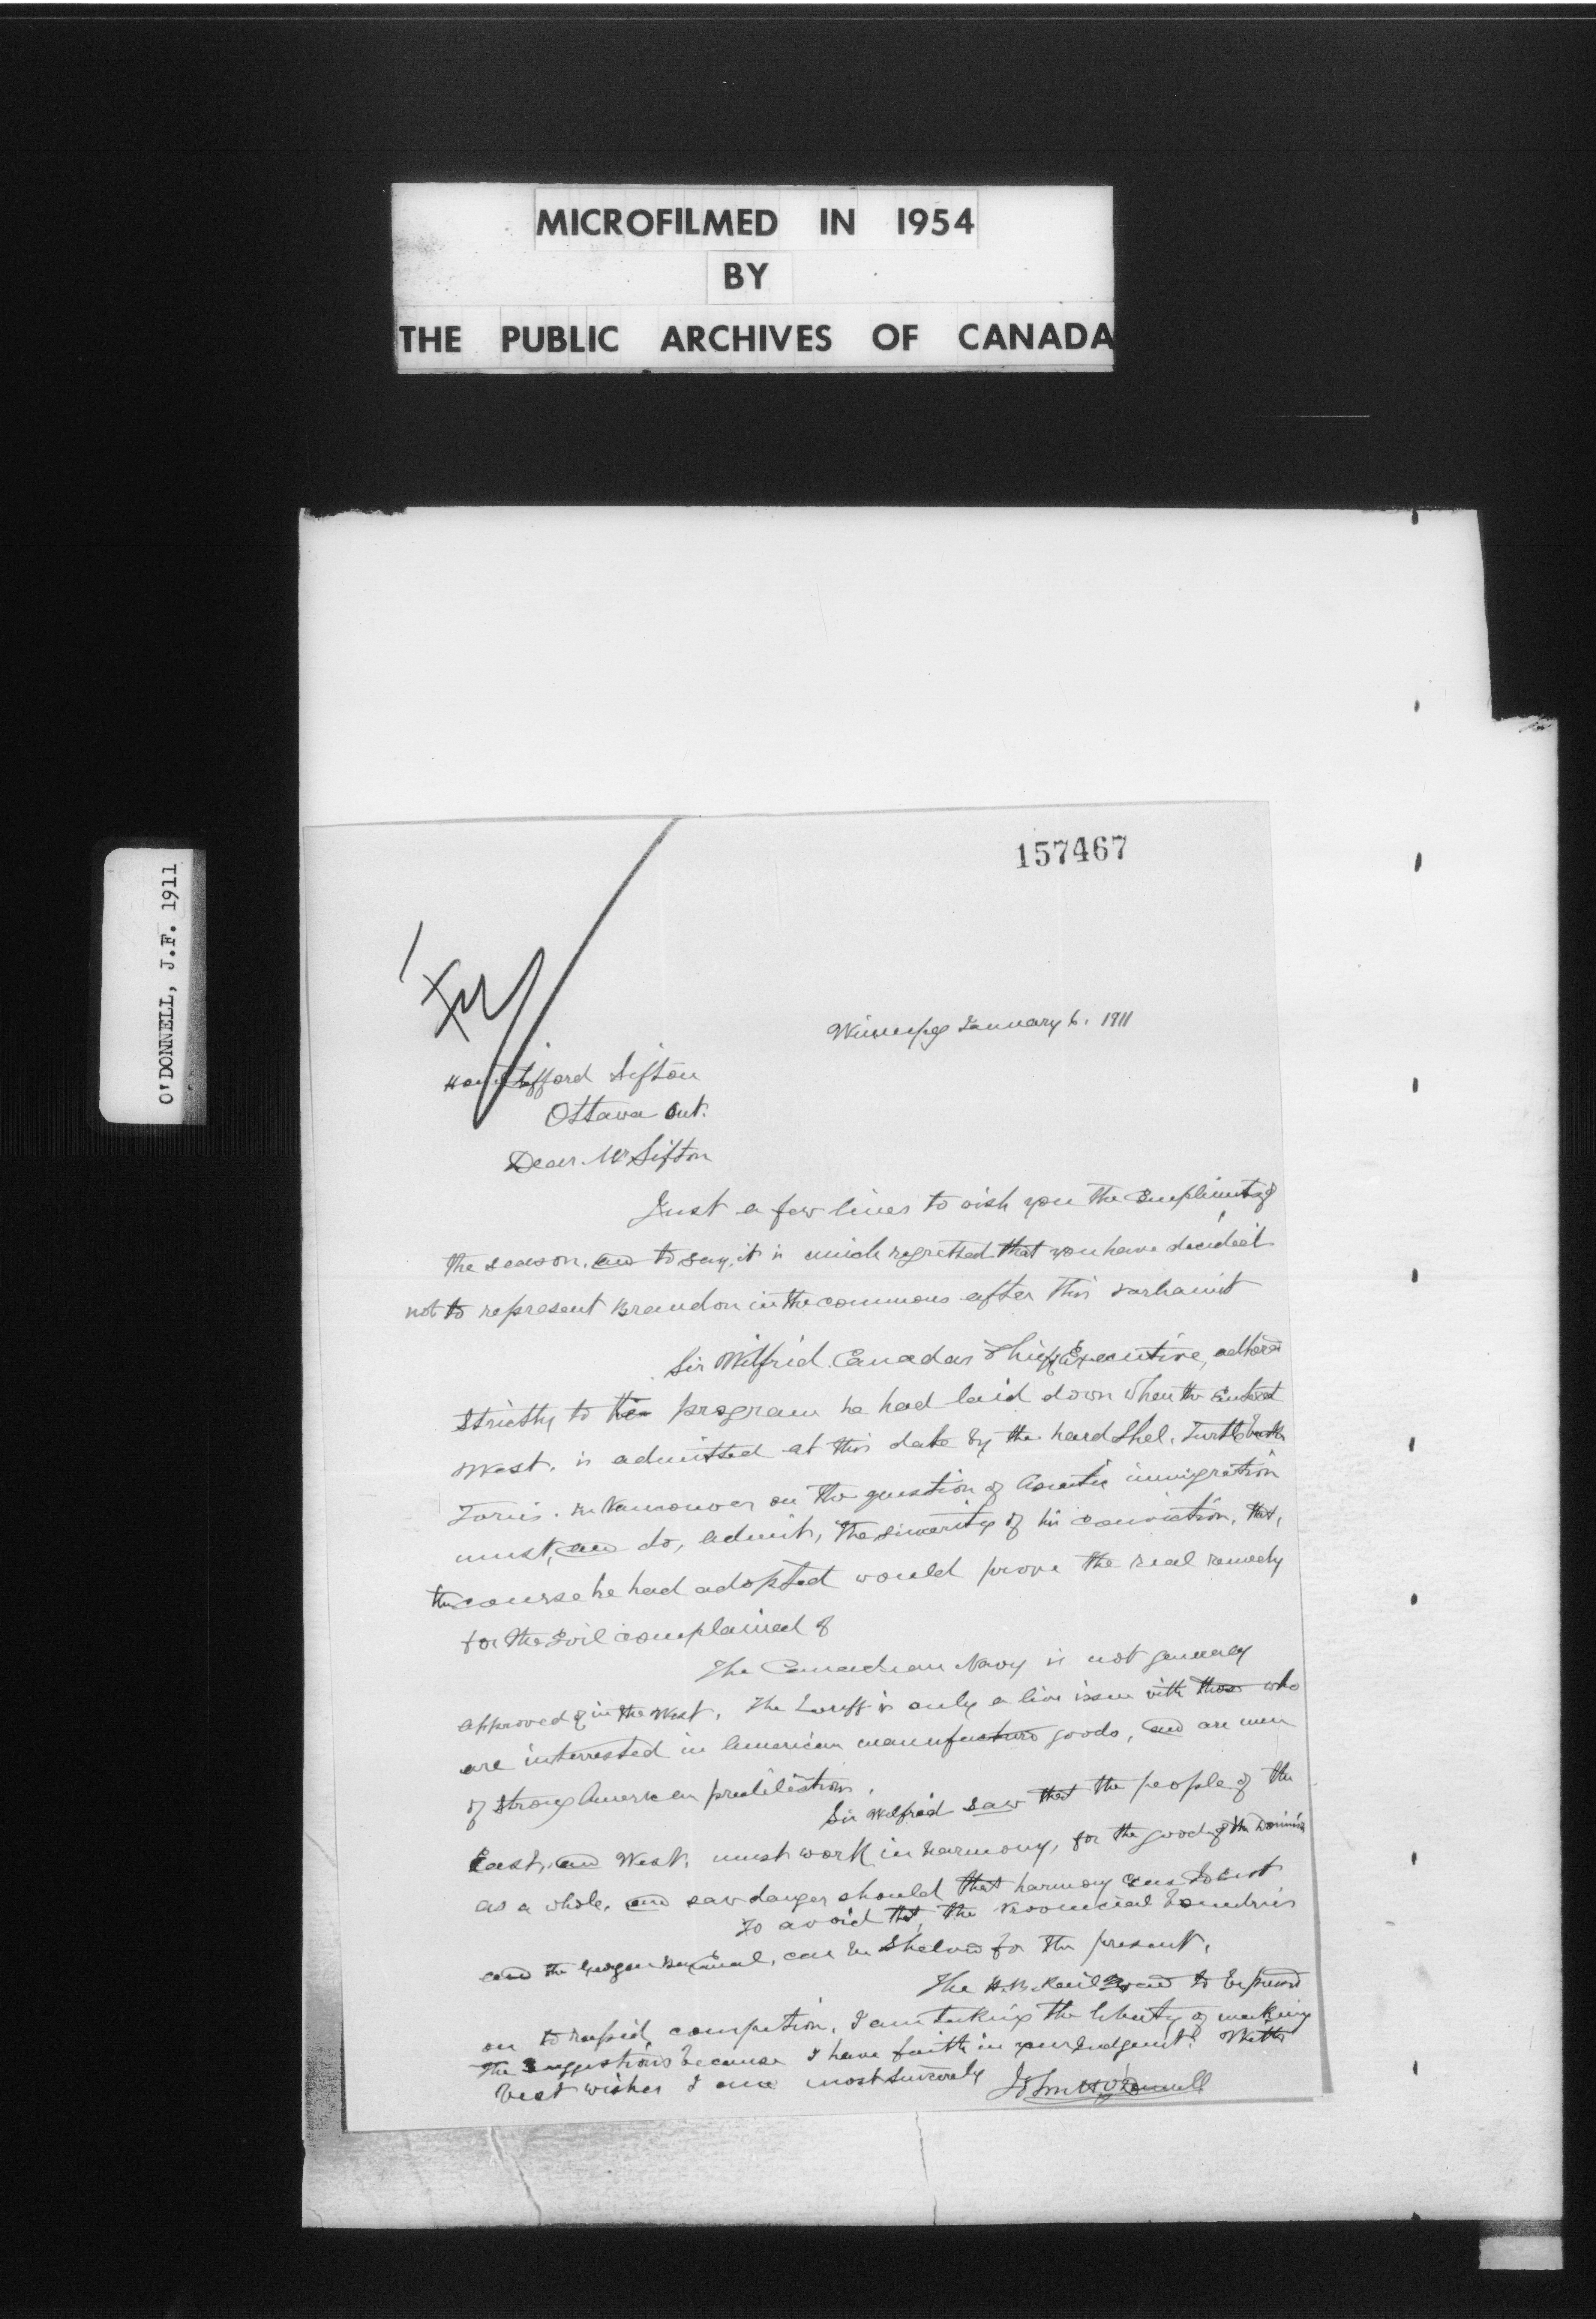 MICROFILMED IN 1954
BY
THE PUBLIC ARCHIVES OF CANADA
O'DONNELL, J.F. 1911
157467
Winnipeg January 6. 1911
Hon Clifford Sifton
Ottawa Ont.
Dear Mr Sifton
Just a few lines to wish you the compliments of
the season, and to say, it is much regretted that you have decided
not to represent Brandon in the commons after this
Sir Wilfrid Canadas Chief Executive, adhered
strictly to the program he had laid down when he entered
West. is admitted at this date by the hard Shel. Turtle back
Tories. In Vancouver on the question of Asiatic immigration
must, and do, admit, the sincerity of his conviction, that,
the course he had adopted would prove the real remedy
for the Evil complained of
The Canadian Navy is not generaly
approved of in the West. The tariff is only a live issue with those who
are interrested in American manufactured goods, and are men
of strong American predilections.
Sir Wilfrid saw that the people of the
East, and West, must work in harmony, for the good of the Dominion
as a whole, and saw danger should that harmony cease to exist
To avoid that, the Provincial boundries
and the Georgian Bay Canal, can be Shelved for the present.
The H.B. Railroad to be pressed
on to rapid competion. I am taking the liberty of making
The Suggestions because I have faith in your Judgment. With
best wishes I am most sincerely John H O'Donnell